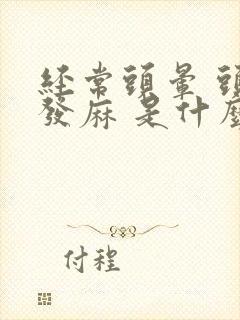 經常頭暈 頭
發麻 是什麼
付程